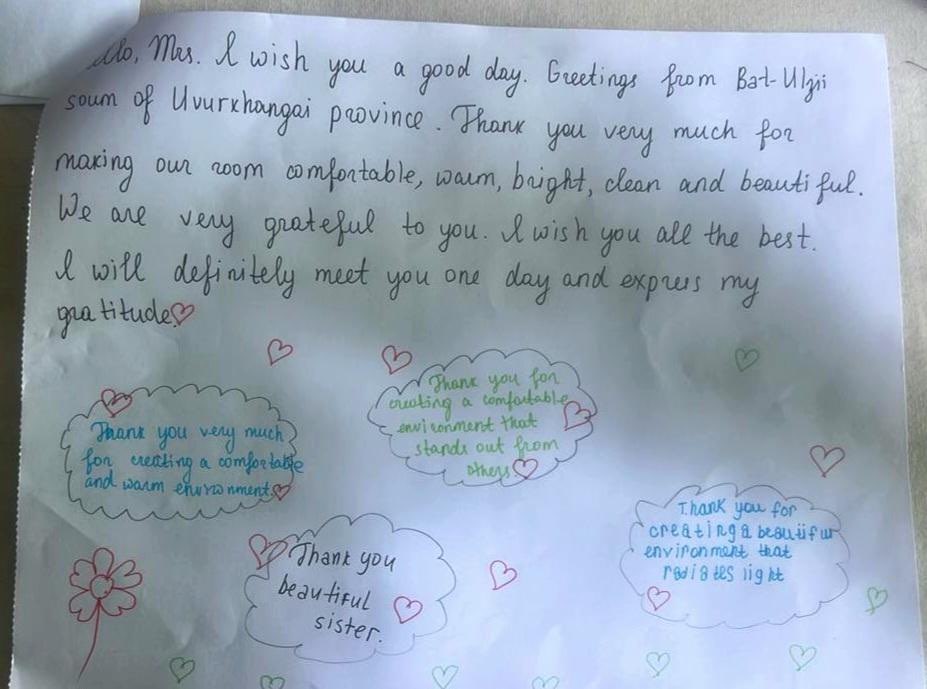 llo, Mrs. I wish you a good day. Greetings from Bat-Ulzii
soum of Uvurkhangai province. Thank you very much for
making our room comfortable, warm, bright, clean and beautiful.
We are very grateful to you. I wish you all the best.
I will definitely meet you one day and express my
gratitude.
Thank you for
creating a comfortable
environment that
stands out from
others.
Thank you very much
for creating a comfortable
and warm environment.
Thank you for
creating a beautiful
environment that
radiates light
Thank you
beautiful
sister.